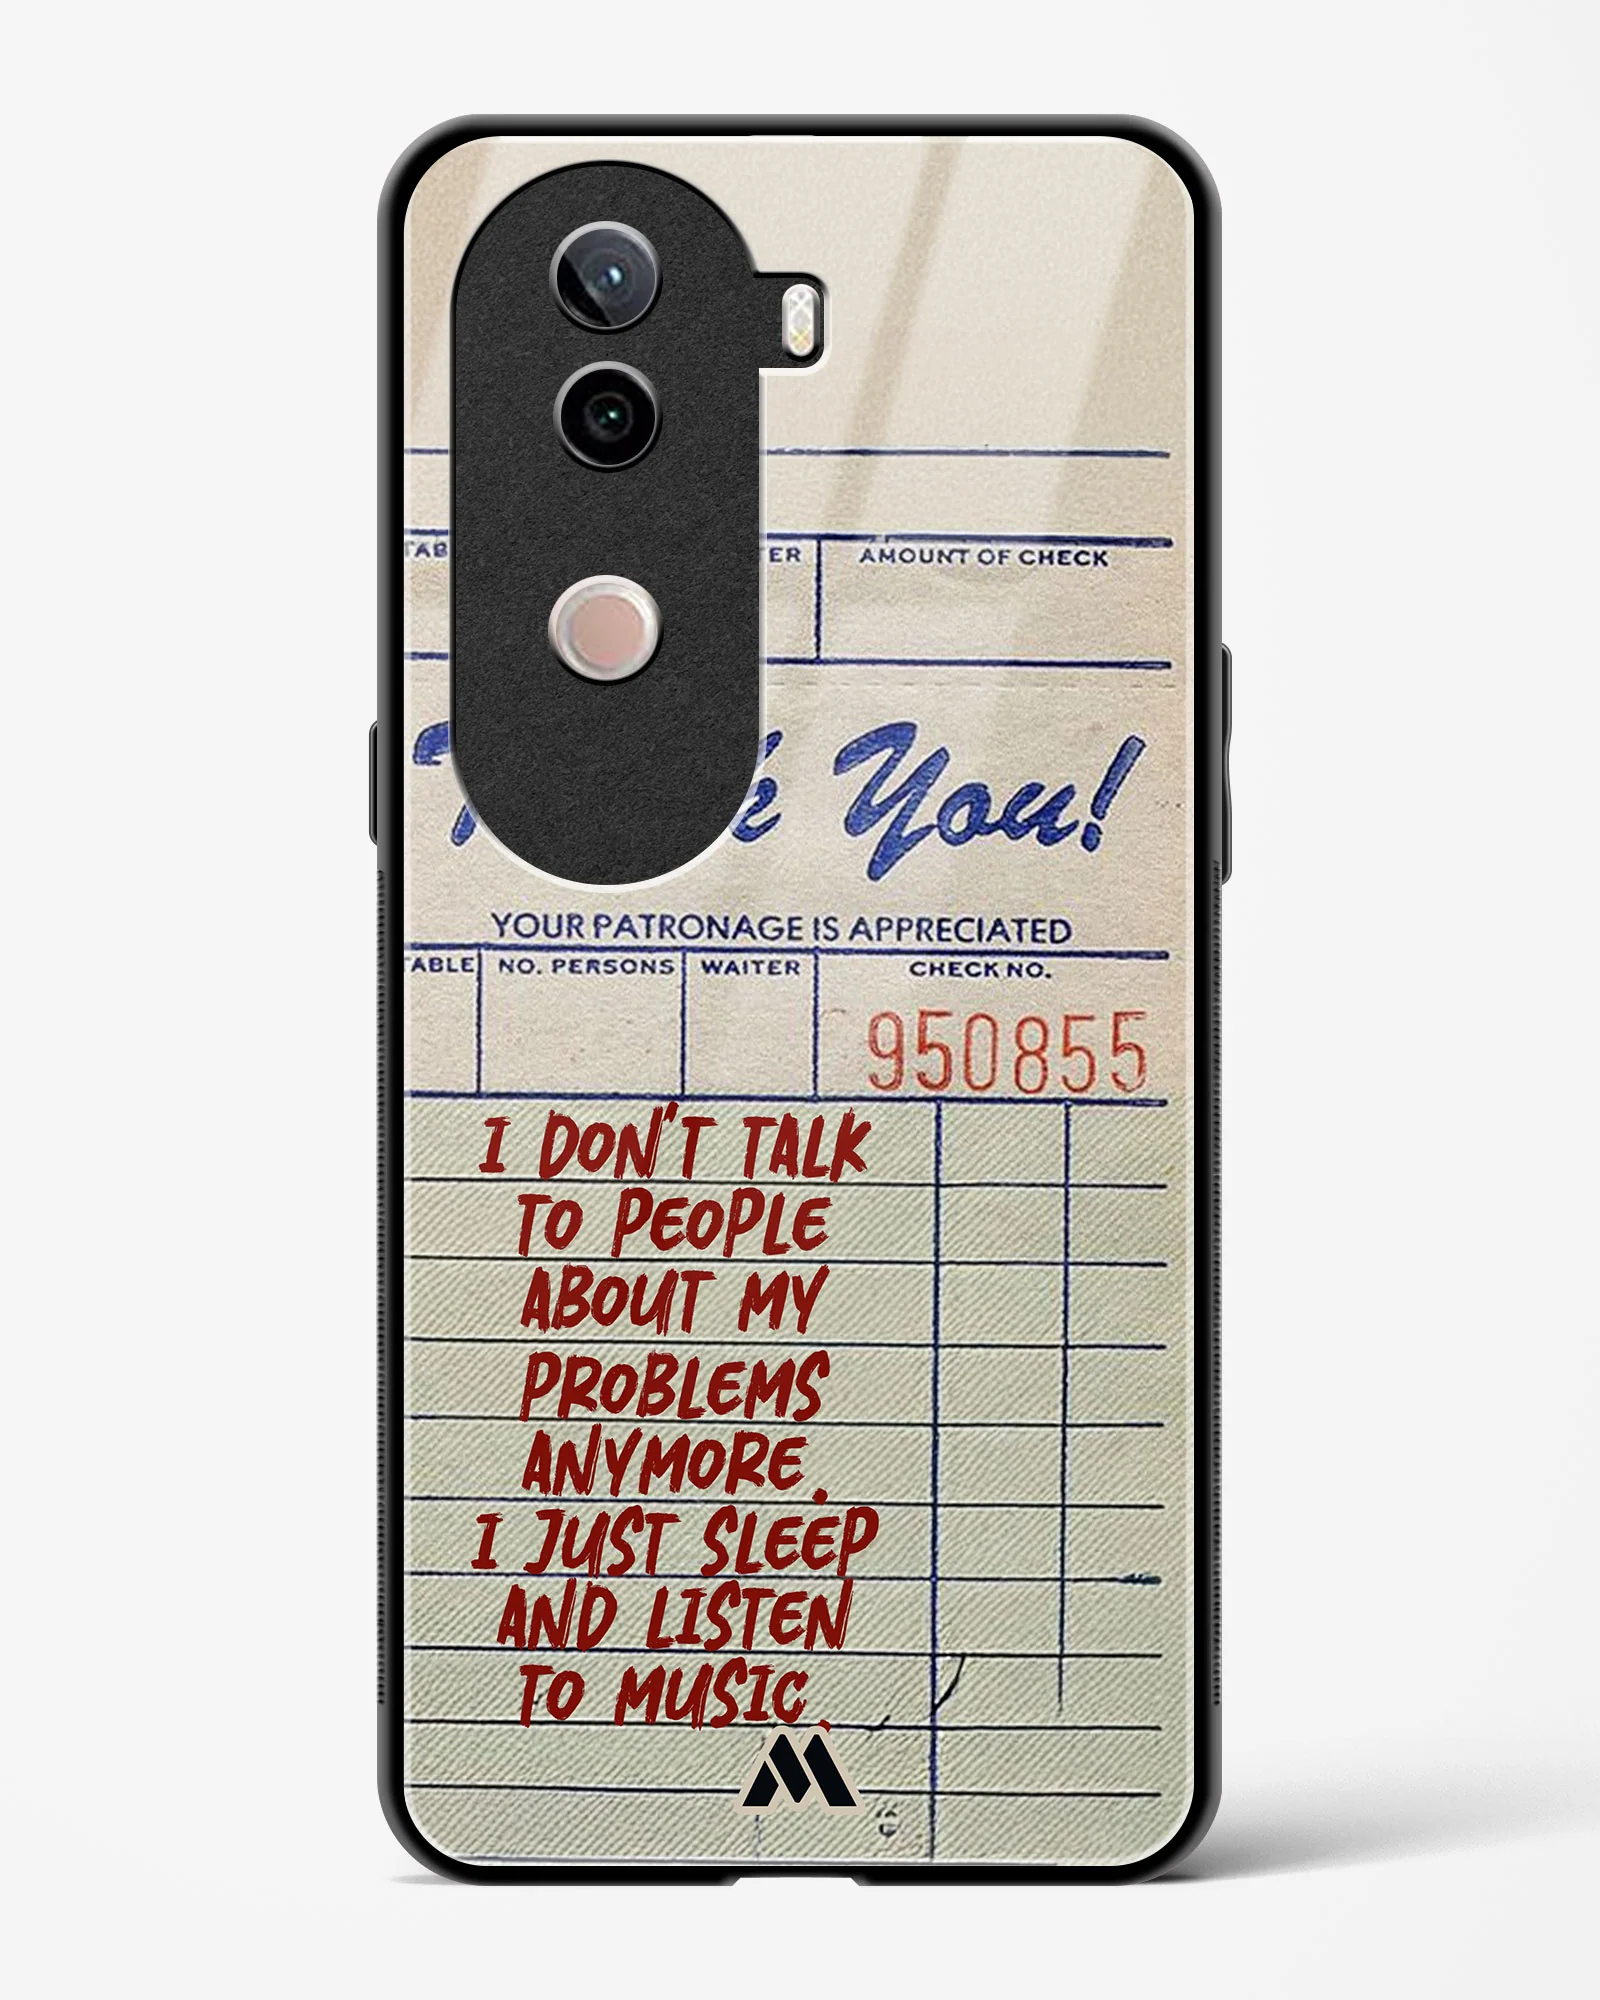 AMOUNT OF CHECK
You!
YOUR PATRONAGE IS APPRECIATED
TABLE NO. PERSONS WAITER CHECK NO.
950855
I DON'T TALK
TO PEOPLE
ABOUT MY
PROBLEMS
ANYMORE.
I JUST SLEEP
AND LISTEN
TO MUSIC.